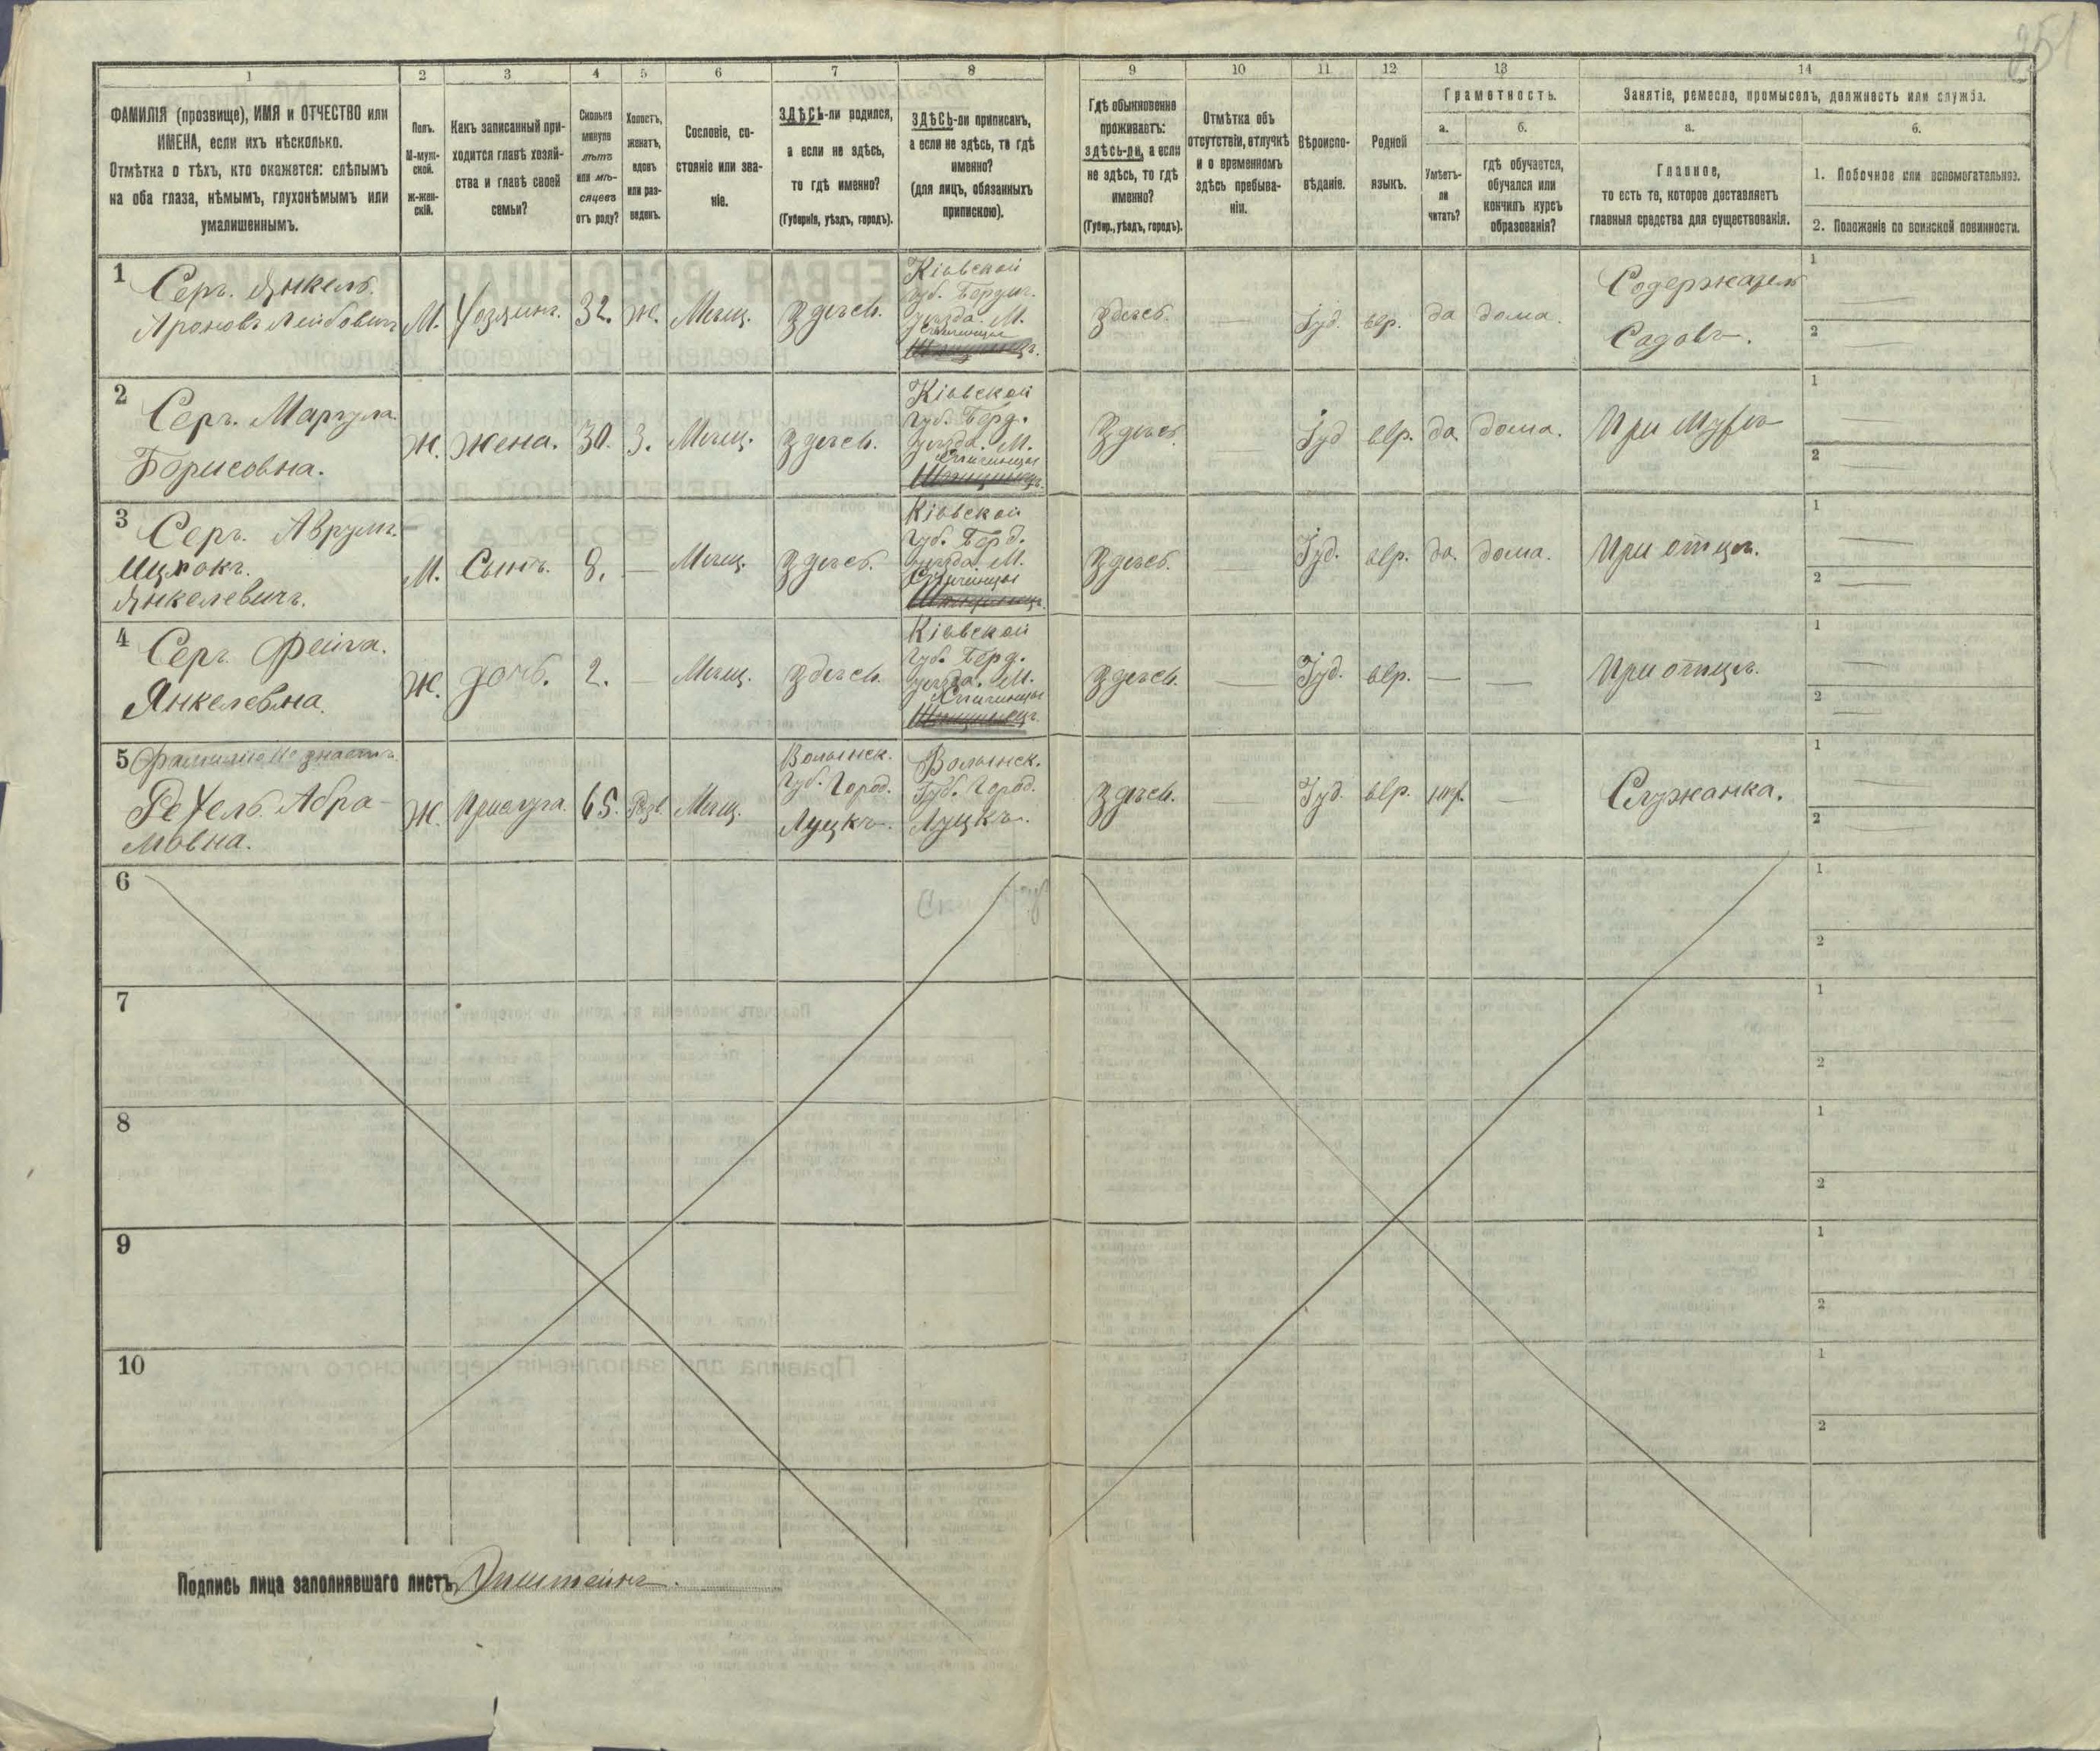 251
1 2 3 4 5 6 7 8 9 10 11 12 13 14
ФАМИЛІЯ (прозвище), ИМЯ и ОТЧЕСТВО или
ИМЕНА, если ихъ нѣсколько.
Отмѣтка о тѣхъ, кто окажется: слѣпымъ
на оба глаза, нѣмымъ, глухонѣмымъ или
умалишеннымъ.
Полъ.
М-муж-
ской.
Ж-жен-
скій.
Какъ записанный при-
ходится главѣ хозяй-
ства и главѣ своей
семьи?
Сколько
минуло
лѣтъ
или мѣ-
сяцевъ
отъ роду?
Холостъ,
женатъ,
вдовъ
или раз-
веденъ.
Сословіе, со-
стояніе или зва-
ніе.
ЗДѢСЬ-ли родился,
а если не здѣсь,
то гдѣ именно?
(Губернія, уѣздъ, городъ).
ЗДѢСЬ-ли приписанъ,
а если не здѣсь, то гдѣ
именно?
(для лицъ, обязанныхъ
припискою).
Гдѣ обыкновенно
проживаетъ:
здѣсь-ли, а если
не здѣсь, то гдѣ
именно?
(Губер., уѣздъ, городъ).
Отмѣтка объ
отсутствіи, отлучкѣ
и о временномъ
здѣсь пребыва-
ніи.
Вѣроиспо-
вѣданіе.
Родной
языкъ.
Грамотность.
а.
Умѣетъ-
ли
читать?
б.
гдѣ обучается,
обучался или
кончилъ курсъ
образованія?
Занятіе, ремесло, промыселъ, должность или служба.
а.
Главное,
то есть то, которое доставляетъ
главныя средства для существованія.
б.
1. Побочное или вспомогательное.
2. Положеніе по воинской повинности.
1
Серъ. Янкель.
Ароновъ Лейбовичъ
М.
Хозяинъ.
32.
Ж.
Мѣщ.
Здѣсь.
Кіевской
губ. Бердич.
уѣзда. М.
Здѣсь.
—
Іуд.
евр.
да
дома.
Содержатель
Садовъ.
1 —
2 —
2
Серъ. Маргула
Борисовна.
Ж.
Жена.
30.
З.
Мѣщ.
Здѣсь.
Кіевской
губ. Берд.
уѣзда. М.
Здѣсь.
—
Іуд
евр.
да.
дома.
При Мужѣ
1 —
2 —
3
Серъ. Аврумъ.
Ицкокъ.
Янкелевичъ.
М.
Сынъ.
8.
—
Мѣщ.
Здѣсь.
Кіевской
губ. Берд.
уѣзда. М.
Здѣсь.
—
Іуд.
евр.
да.
дома.
При отцѣ.
1 —
2 —
4
Серъ. Фейга.
Янкелевна.
Ж.
дочь.
2.
—
Мѣщ.
Здѣсь.
Кіевской
губ. Берд.
уѣзда. М.
Здѣсь.
—
Іуд.
евр.
—
—
При отцѣ.
1 —
2 —
5
Фамилію не знаетъ
Рехель Абра-
мовна.
Ж.
Прислуга.
65.
Мѣщ.
Волынск.
Губ. Город.
Луцкъ.
Волынск.
Губ. Город.
Луцкъ.
Здѣсь.
Іуд.
евр.
—
Служанка.
1 —
2 —
6
1
2
7
1
2
8
1
2
9
1
2
10
1
2
Подпись лица заполнявшаго листъ